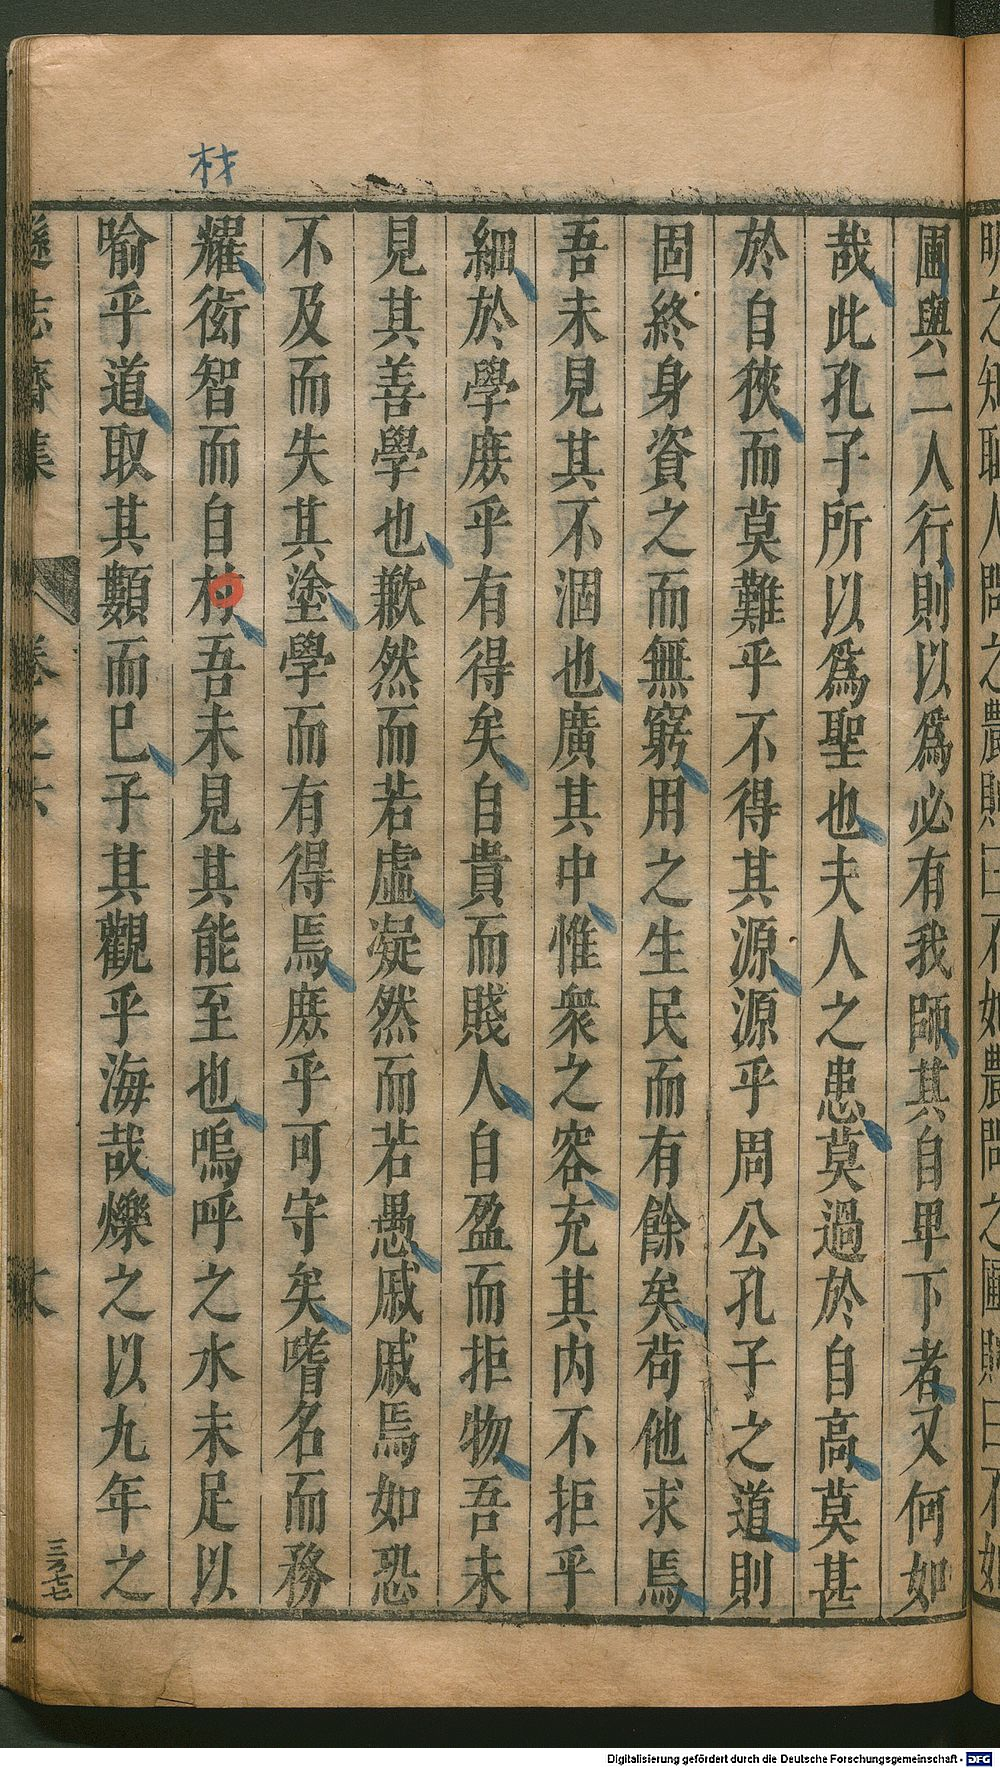 圃與二人行則以爲必有我師其自卑下者又何如
哉此孔子所以爲聖也夫人之患莫過於自高莫甚
於自狹而莫難乎不得其源源乎周公孔子之道則
固終身資之而無窮用之生民而有餘矣茍他求焉
吾未見其不涸也廣其中惟衆之容充其内不拒乎
細於學庻乎有得矣自貴而賤人自盈而拒物吾未
見其善學也歉然而若虛凝然而若愚戚戚焉如恐
不及而失其塗學而有得焉庻乎可守矣嗜名而務
耀衒智而自材吾未見其能至也嗚呼之水未足以
喻乎道取其類而已子其觀乎海哉爍之以九年之
材
遜志齋集
卷之六
三乃七七
Digitalisierung gefördert durch die Deutsche Forschungsgemeinschaft - DFG